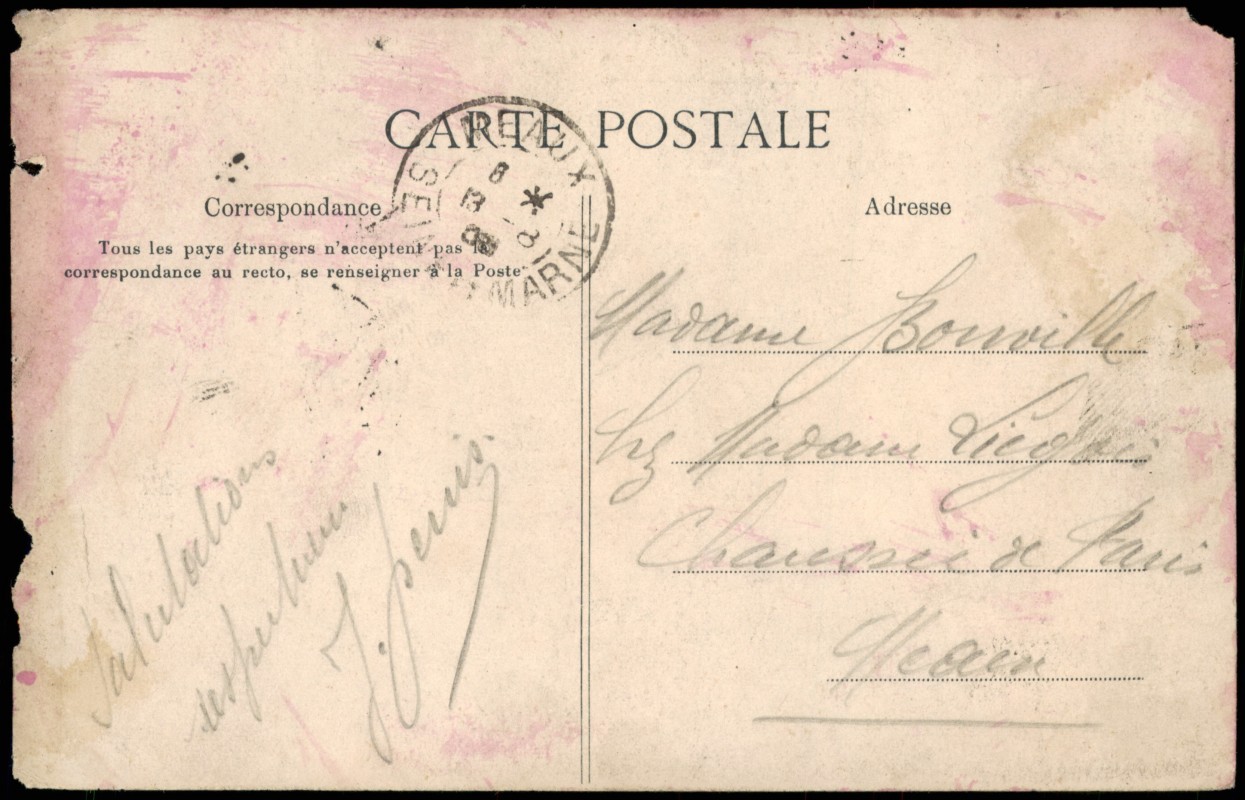 CARTE POSTALE
MEAUX
8 *
13 - 8
08
SEINE-ET-MARNE
Correspondance
Tous les pays étrangers n'acceptent pas la
correspondance au recto, se renseigner à la Poste
Adresse
Salutations
respectueuses
J.
Madame Bonville
chez Madame
Chaussée de Paris
Meaux